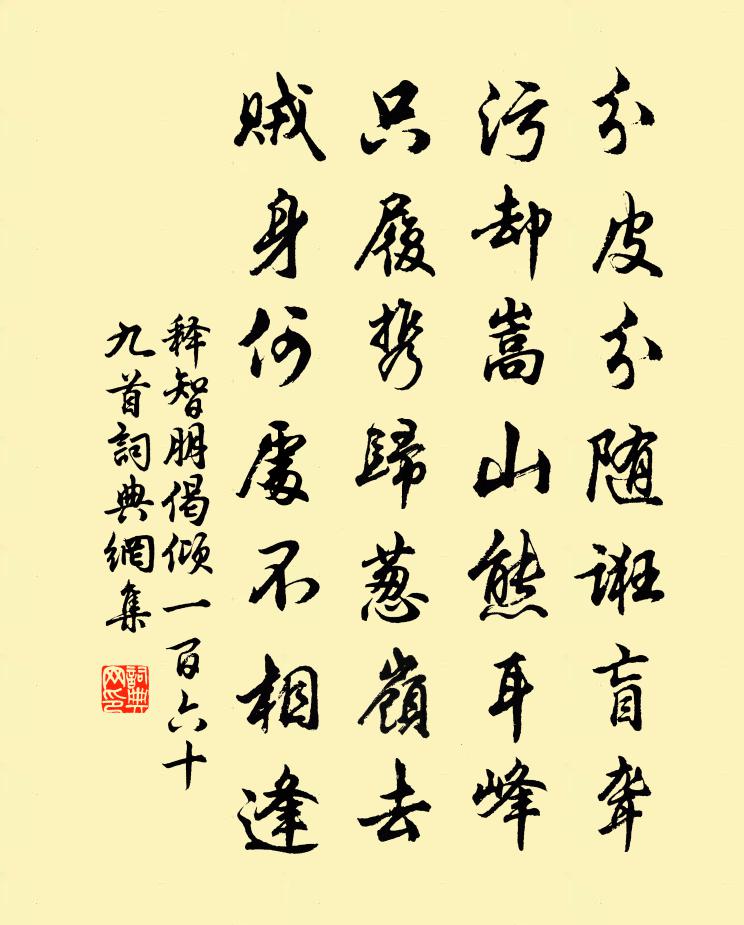 分皮分随誑盲聋
污却嵩山熊耳峰
只履携歸葱嶺去
賊身何處不相逢
释智朋偈倾一百六十
九首詞典網集
詞典网印